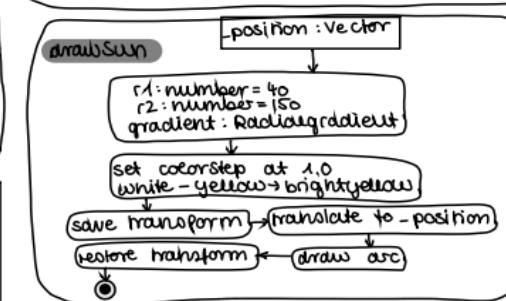 _position : Vector
drawSun
r1 : number = 40
r2 : number = 150
gradient : Radialgradient
set colorStep at 1,0
white - yellow → brightyellow
save transform
translate to _position
restore transform
draw arc